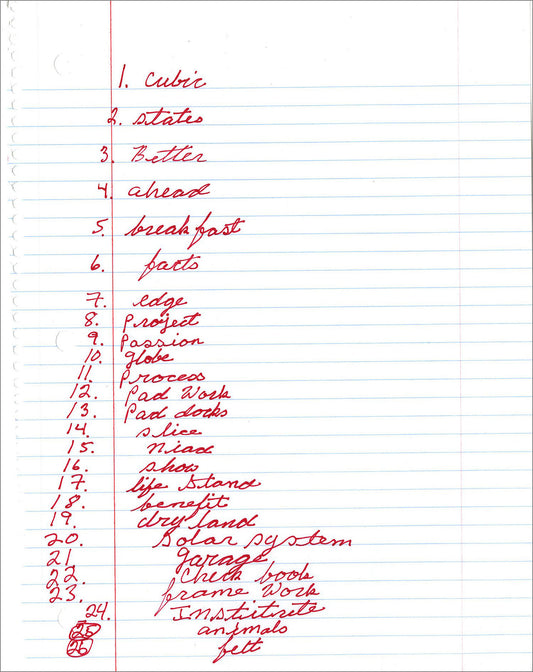 1. cubic
2. states
3. Better
4. ahead
5. breakfast
6. facts
7. edge
8. Project
9. Passion
10. globe
11. Process
12. Pad Work
13. Pad docks
14. slice
15.
16. show
17. life Stand
18. benefit
19. dry land
20. Solar system
21. garage
22. Check book
23. frame Work
24.
25 animals
26 felt